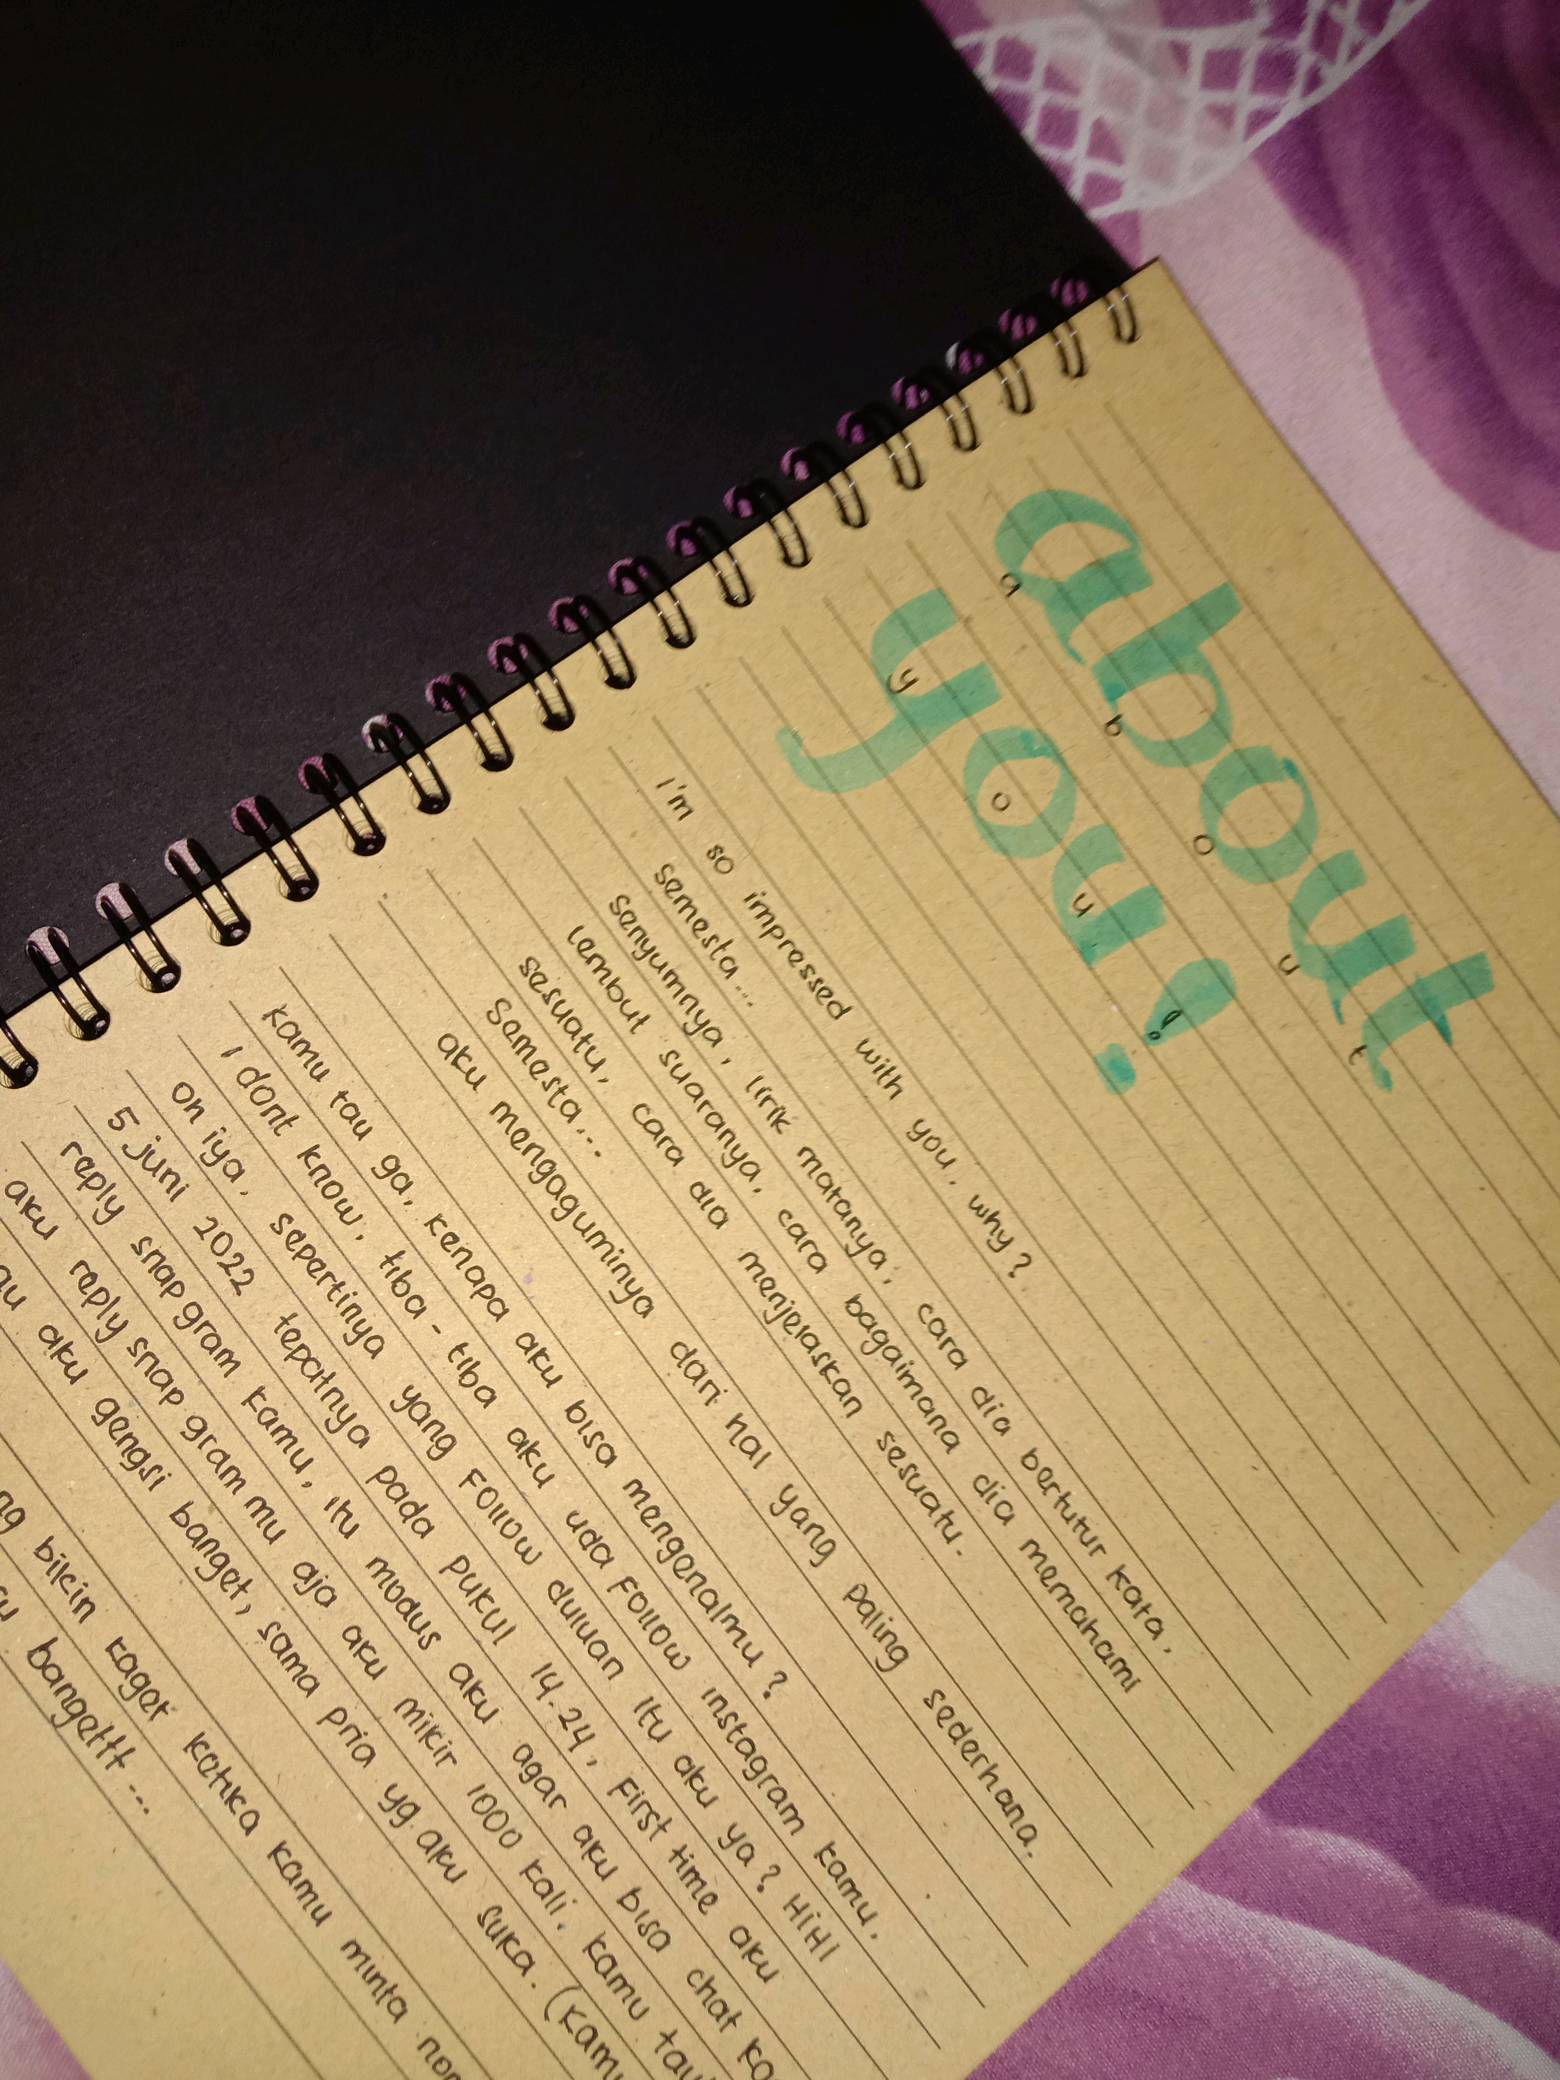 about
a b o u t
you!
y o u !
I'm so impressed with you, why?
semesta...
senyumnya, lirik matanya, cara dia bertutur kata,
lembut suaranya, cara bagaimana dia memahami
sesuatu, cara dia menjelaskan sesuatu.
Semesta...
aku mengaguminya dari hal yang paling sederhana.
kamu tau ga, kenapa aku bisa mengenalmu?
I dont know, tiba-tiba aku uda follow instagram kamu.
oh iya, sepertinya yang Follow duluan itu aku ya? HiHi
5 juni 2022 tepatnya pada pukul 14.24, First time aku
reply snapgram kamu, itu modus aku agar aku bisa chat
aku reply snapgram mu aja aku mikir 1000 kali. kamu
aku gengsi banget, sama pria yg aku suka. (kamu
bikin kaget ketika kamu minta
bangettt...